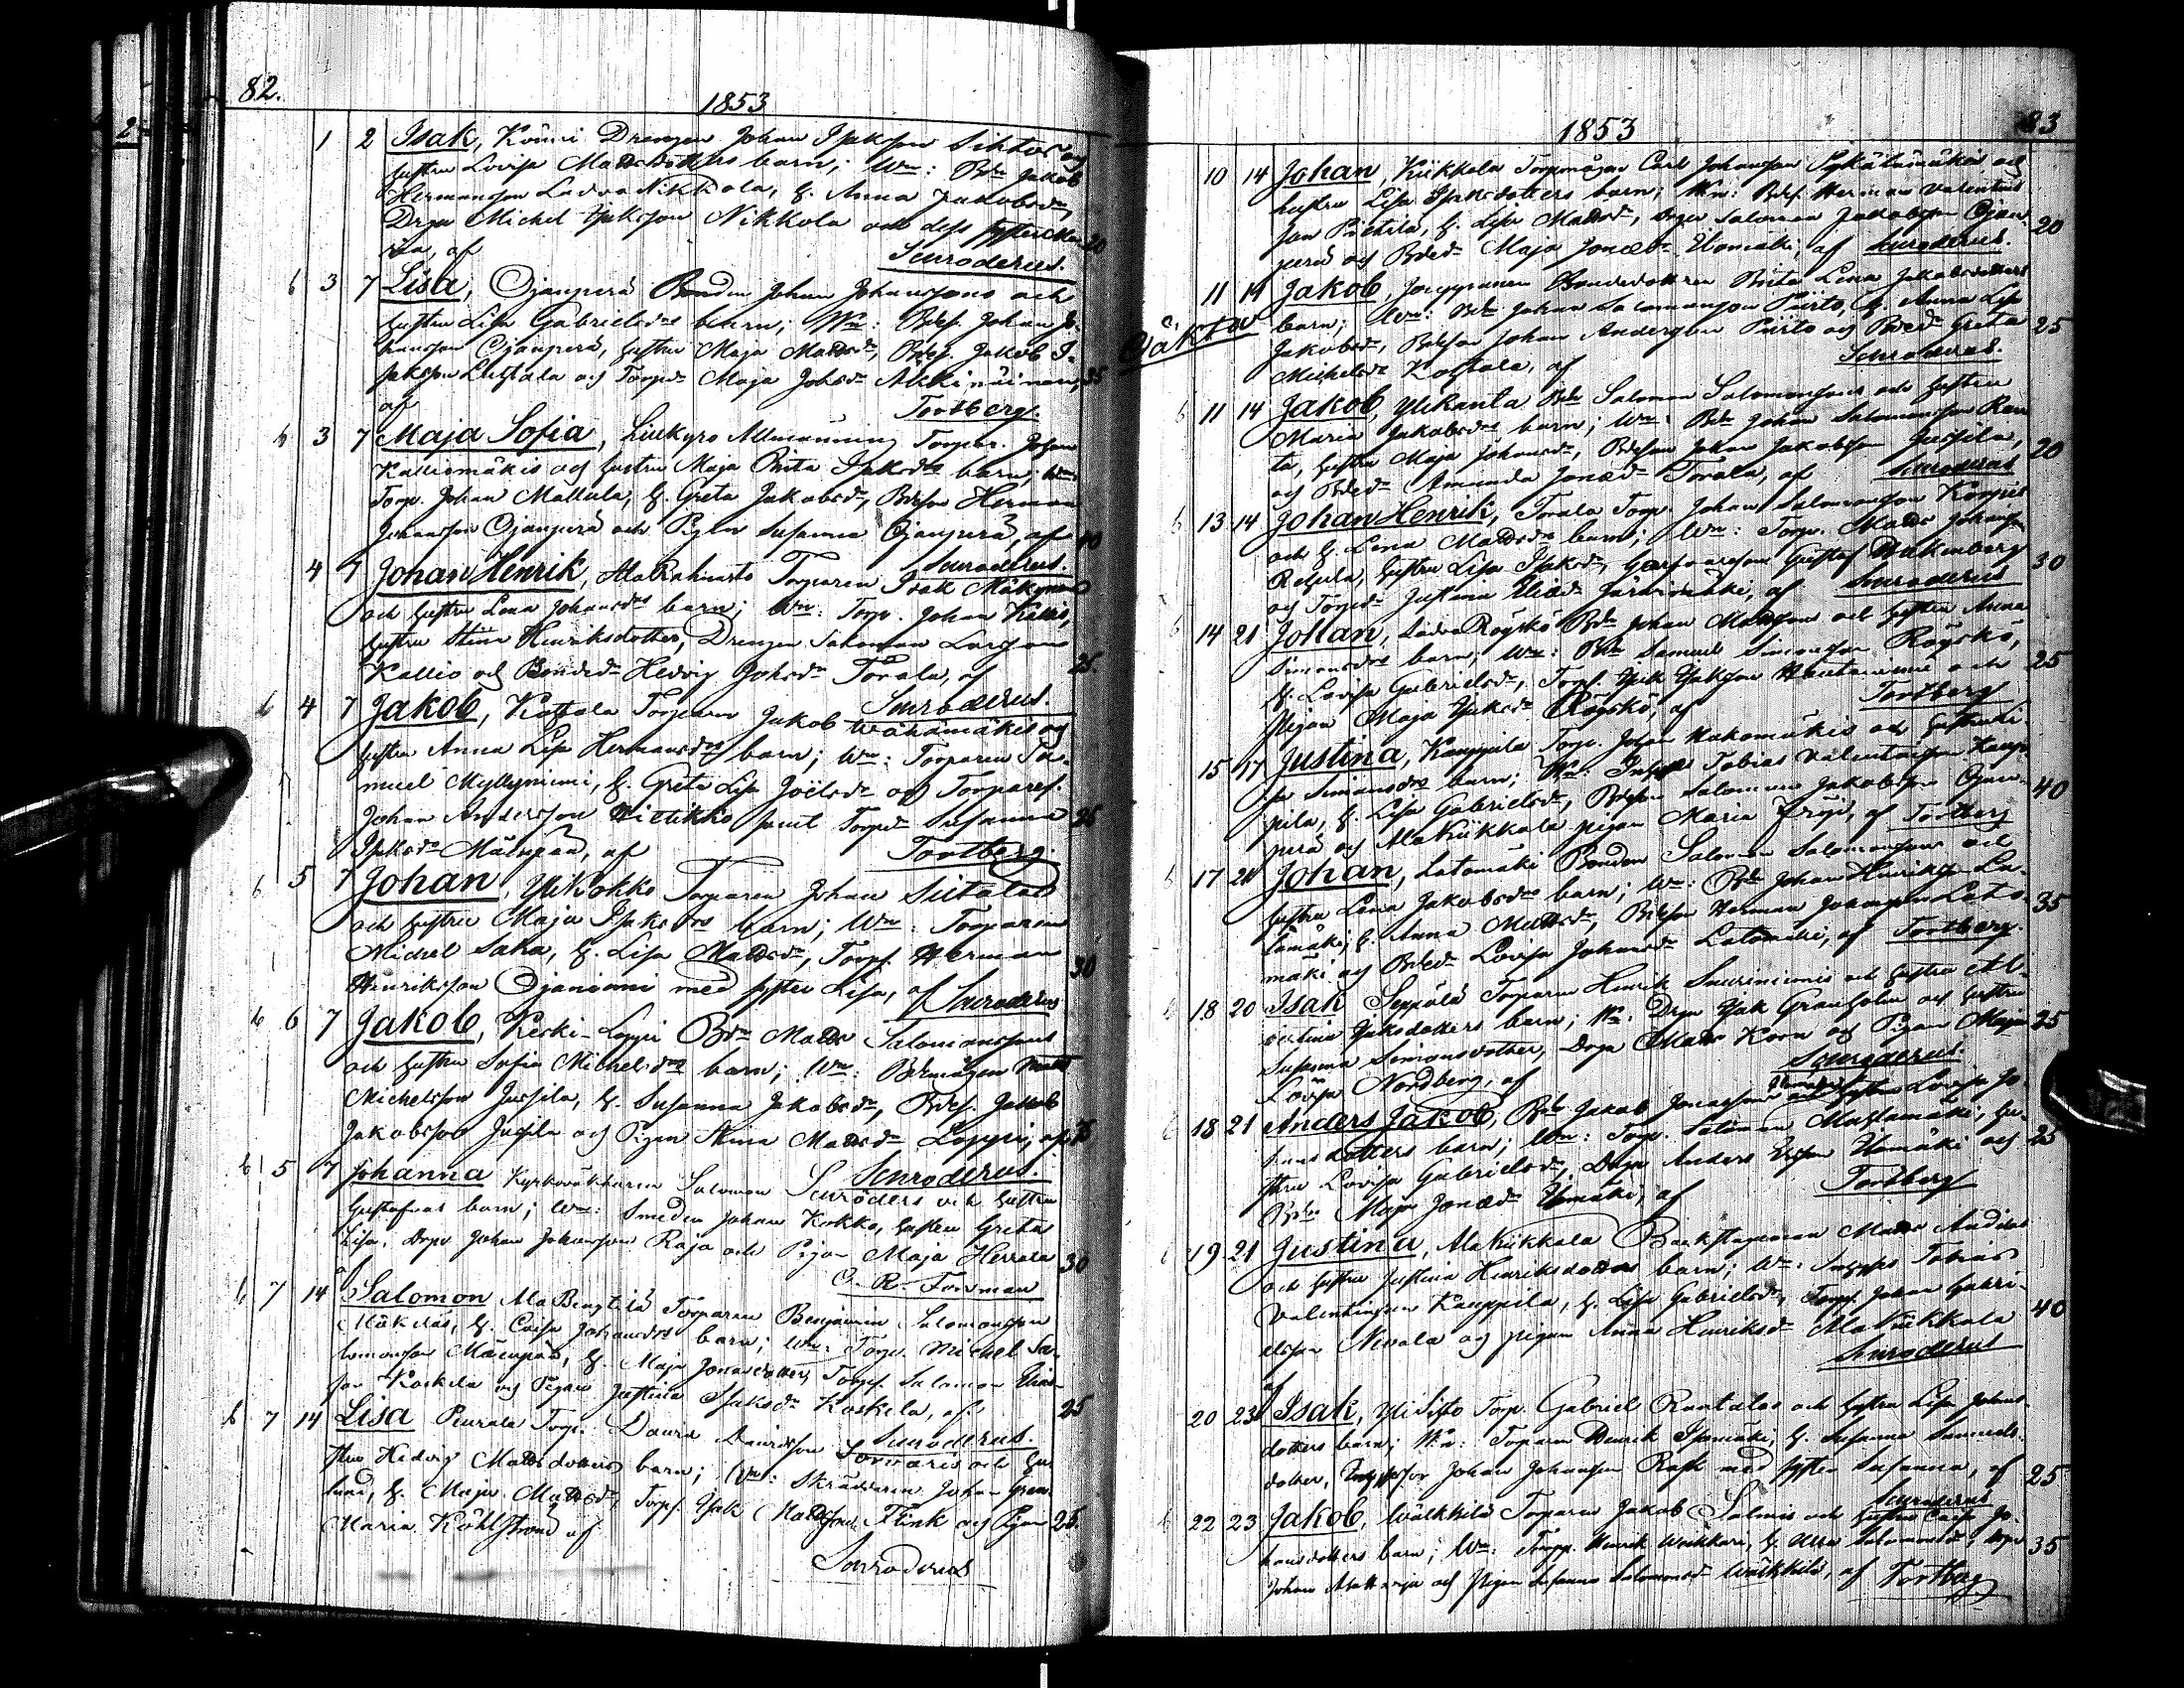 82.
1853
1 2 Isak, Könni Drengen Johan Isaksson Siktars och
hustru Lovisa Mattsdotters barn; Wn: Bdn Jakob
Hermansson Ladva Nikkola, h. Anna Jakobsdr,
Drgn Michel Isaksson Nikkola och dess syster Ma- 20
ria, af Snroderus.
6 3 7 Lisa, Ojanperä Bonden Johan Johanssons och
hustru Lisa Gabrielsdrs barn; Wn: Bdes. Johan Jo-
hansson Ojanperä, hustru Maja Mattsdr, Bdes. Jakob I-
saksson Luhtala och Torpdr Maja Johsdr 35
af Tortberg.
6 3 7 Maja Sofia, Liukyro Allmänning Torpar. Johan
Kalliomäkis och hustru Maja Brita Isaksdrs barn; Wn:
Torp. Johan Mattula, h. Greta Jakobsdr, Bdeson Herman
Johansson Ojanperä och Pigan Susanna Ojanperä, af 40
Snroderus.
4 7 Johan Henrik, Torparen Isak Mäkynen
och hustru Lena Johansdrs barn; Wn: Torp. Johan Kallio,
hustru Stina Henriksdotter, Drengen Salomon Larsson
Kallio och Bondedr Hedvig Johsdr Torala, af 25.
Snroderus.
6 4 7 Jakob, Kossola Torparen Jakob Wähämäkis och
hustru Anna Lisa Hermansdrs barn; Wn: Torparen Sa-
muel Myllyniemi, h. Greta Lisa Joëlsdr och Torpares.
Johan Andersson Hietikko samt Torpdr Susanna 25
Isaksdr Mäenpää, af Tortberg.
6 5 7 Johan, Torparen Johan Siltalas
och hustru Maja Isaksdrs barn; Wn: Torparen
Michel Saha, h. Lisa Mattsdr, Torps. Herman
Henriksson Ojaniemi med syster Lisa, af Snroderus 30
6 6 7 Jakob, Keski-Loppi Bdn Matts Salomonssons
och hustru Sofia Michelsdrs barn; Wn: Bdemågen Matts
Michelsson Jussila, h. Susanna Jakobsdr, Bdes. Jakob
Jakobsson Jussila och Pigan Stina Mattsdr Loppi, af 35
Snroderus.
6 5 7 Johanna Kyrkoväktaren Salomon Snröders och hustru
Gustafvas barn; Wn: Smeden Johan Kokko, hustru Greta
Lisa, Drgn Johan Johansson Raja och Pigan Maja Herrala 30
af C. R. Forsman
6 7 14 Salomon Ala Bengtilä Torparen Benjamin Salomonsson
Mäkeläs, h. Caisa Johansdrs barn; Wn: Torp. Michel Sa-
lomonsson Mäenpää, h. Maja Jonasdotter, Torps. Salomon Elias-
son Koskela och Pigan Justina Isaksdr Koskela, af 25
Snroderus.
6 7 14 Lisa Peurala Torp. David Davidsson och hu-
stru Hedvig Mattsdotters barn; Wn: Skräddaren Johan Gran-
lund, h. Maja Mattsdr, Torps. Isak Mattsson Flink och Pigan 25.
Maria Köhlström af
Snroderus
1853
83
10 14 Johan, Kiikkala Torpmågen Carl Johansson och
hustru Lisa Isaksdotters barn; Wn: Bdes. Herman Valentins-
son Pietilä, h. Lisa Mattsdr, Drgn Salomon Jakobsson Ojan- 20
perä och Bdedr Maja Jonædr Uomäki, af Snroderus.
11 14 Jakob, Bondedottren Brita Lena Jakobsdotters
Oäkta
barn; Wn: Bdn Johan Salomonsson Piirto, h. Anna Lisa
Jakobsdr, Bdeson Johan Andersson Piirto och Bdedr Greta 25
Michelsdr Kossola, af Snroderus.
6 11 14 Jakob, Ylikanta Bdn Salomon Salomonssons och hustru
Maria Jakobsdrs barn; Wn: Bdn Johan Salomonsson Ran-
ta, hustru Maja Johansdr, Bdeson Johan Jakobsson Jussila, 20
och Bdedr Amanda Jonædr Torala, af Snroderus
6 13 14 Johan Henrik, Torala Torp. Johan Salomonsson Korpis
och h. Lena Mattsdrs barn; Wn: Torp. Matts Johansson
Rehula, hustru Lisa Isaksdr, Garfvaresonen Gustaf Wakenberg 30
och Torpdr Justina Eliædr Järvimäki, af Snroderus
6 14 21 Johan, Ladva Röyskö Bdn Johan Mattssons och hustru Anna
Simonsdrs barn; Wn: Bdn Samuel Simonsson Röyskö,
h. Lovisa Gabrielsdr, Torps. Isak Isaksson Hautaniemi och 25
Pigan Maja Isaksdr Röyskö, af Tortberg
15 17 Justina, Kauppila Torp. Johan Hakomäkis och hustru Li-
sa Simonsdrs barn; Wn: Tobias Valentinsson Kaup-
pila, h. Lisa Gabrielsdr, Bdeson Salomon Jakobsson Ojan- 40
perä och Ala Kiikkala pigan Maria Fröjd, af Tortberg
6 17 21 Johan, Latomäki Bonden Salomon Salomonssons och
hustru Lena Jakobsdrs barn; Wn: Bdn Johan Henriksson La-
tomäki, h. Anna Mattsdr, Bdeson Herman Johansson Lato- 35
mäki och Bdedr Lovisa Johansdr Latomäki, af Tortberg.
6 18 20 Isak Seppälä Torparen Henrik Suriniemis och hustru Al-
bertina Isaksdotters barn; Wn: Drgn Isak Granholm och hustru
Susanna Simonsdotter, Drgn Matts Korn och Pigan Maja 25
Lovisa Nordberg, af Snroderus.
6 18 21 Anders Jakob, Bdn Jakob Jonassons och hustru Lovisa Jo-
hansdotters barn; Wn: Torp. Salomon Mastamäki, hu-
stru Lovisa Gabrielsdr, Drgn Anders Uomäki och 25
Bdedr Maja Jonædr Uomäki, af Tortberg
6 19 21 Justina, Ala Kiikkala Backstugeman Matts
och hustru Justina Henriksdotters barn; Wn: Tobias
Valentinsson Kauppila, h. Lisa Gabrielsdr, Torps. Johan Gabri-
elsson Nevala och pigan Anna Henriksdr Ala Kiikkala 40
af Snroderus
20 23 Isak, Torp. Gabriel Rantalas och hustru Lisa Johans-
dotters barn; Wn: Torparen Henrik h. Susanna Samuels-
dotter, Johan Johansson Rask med syster Susanna, af 25
Snroderus
6 22 23 Jakob, Wälkkilä Torparen Jakob Salmis och hustru Caisa Jo-
hansdotters barn; Wn: Henrik h. Ulla Salomonsdr, Drgn 35
Johan och Pigan Susanna Salomonsdr Wälkkilä, af Tortberg